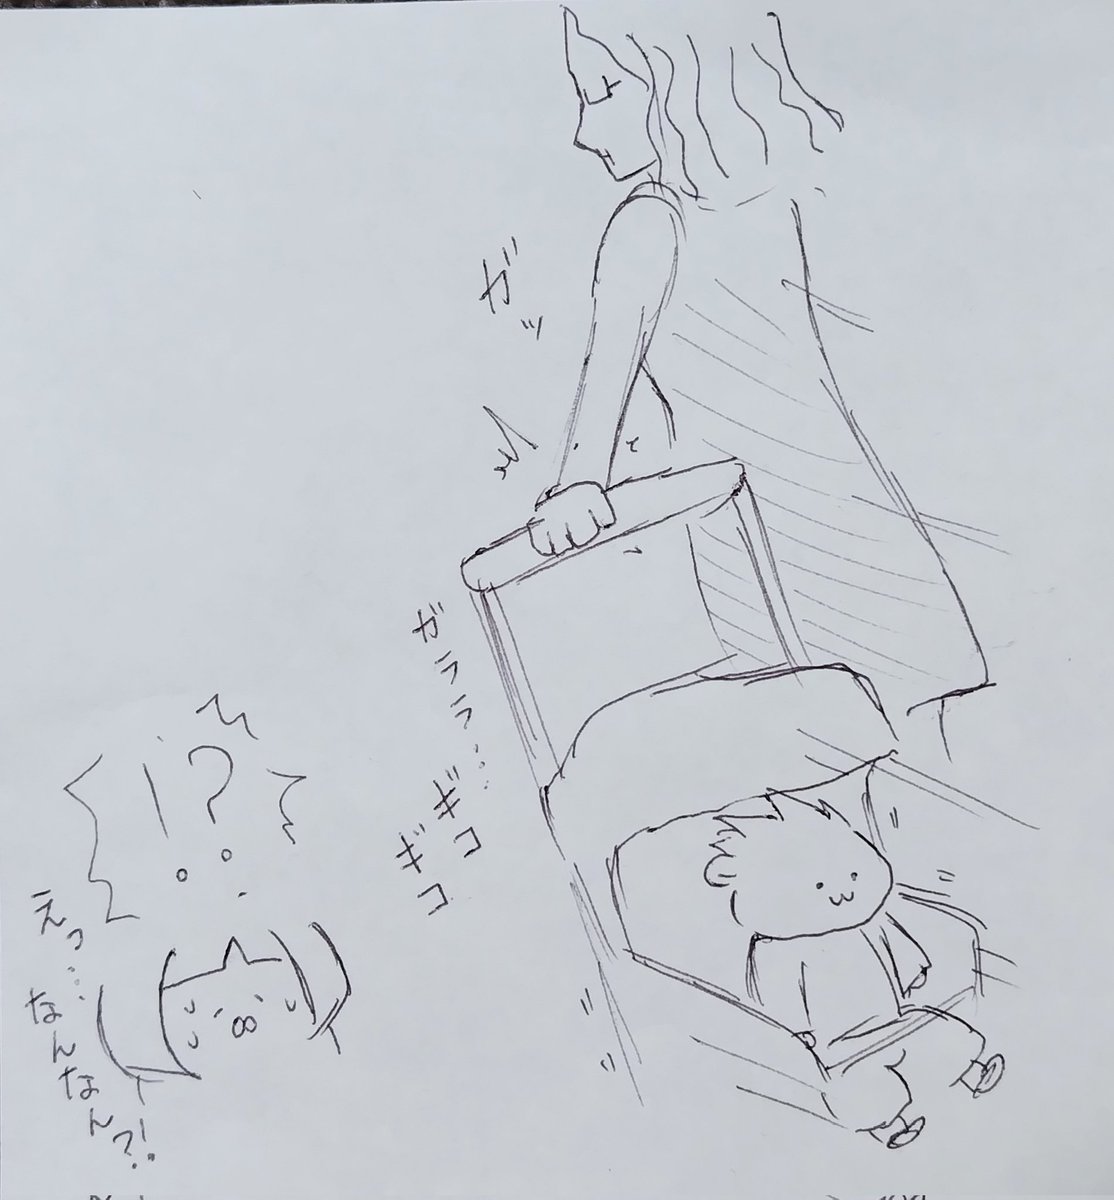 ガッ
ガラララ…
ギコ
ギコ
!?
えっ…
なんなん?!